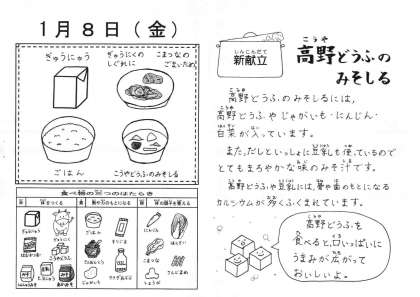 1月8日(金)
ぎゅうにゅう
ぎゅうにくの
しぐれに
こまつなの
ごまいため
ごはん
こうやどうふのみそしる
食べ物の三つのはたらき
体をつくる
体の調子を整える
ぎゅうにゅう
ごはん
にんじん
こまつな
しょうが
しんこんだて
新献立
こうや
高野どうふの
みそしる
高野どうふのみそしるには、
高野どうふやじゃがいも・にんじん・
白菜が入っています。
また、だしといっしょに豆乳も使っているので
とてもまろやかな味のみそ汁です。
高野どうふや豆乳には、骨や歯のもとになる
カルシウムが多くふくまれています。
高野どうふを
食べると、口いっぱいに
うまみが広がって
おいしいよ。